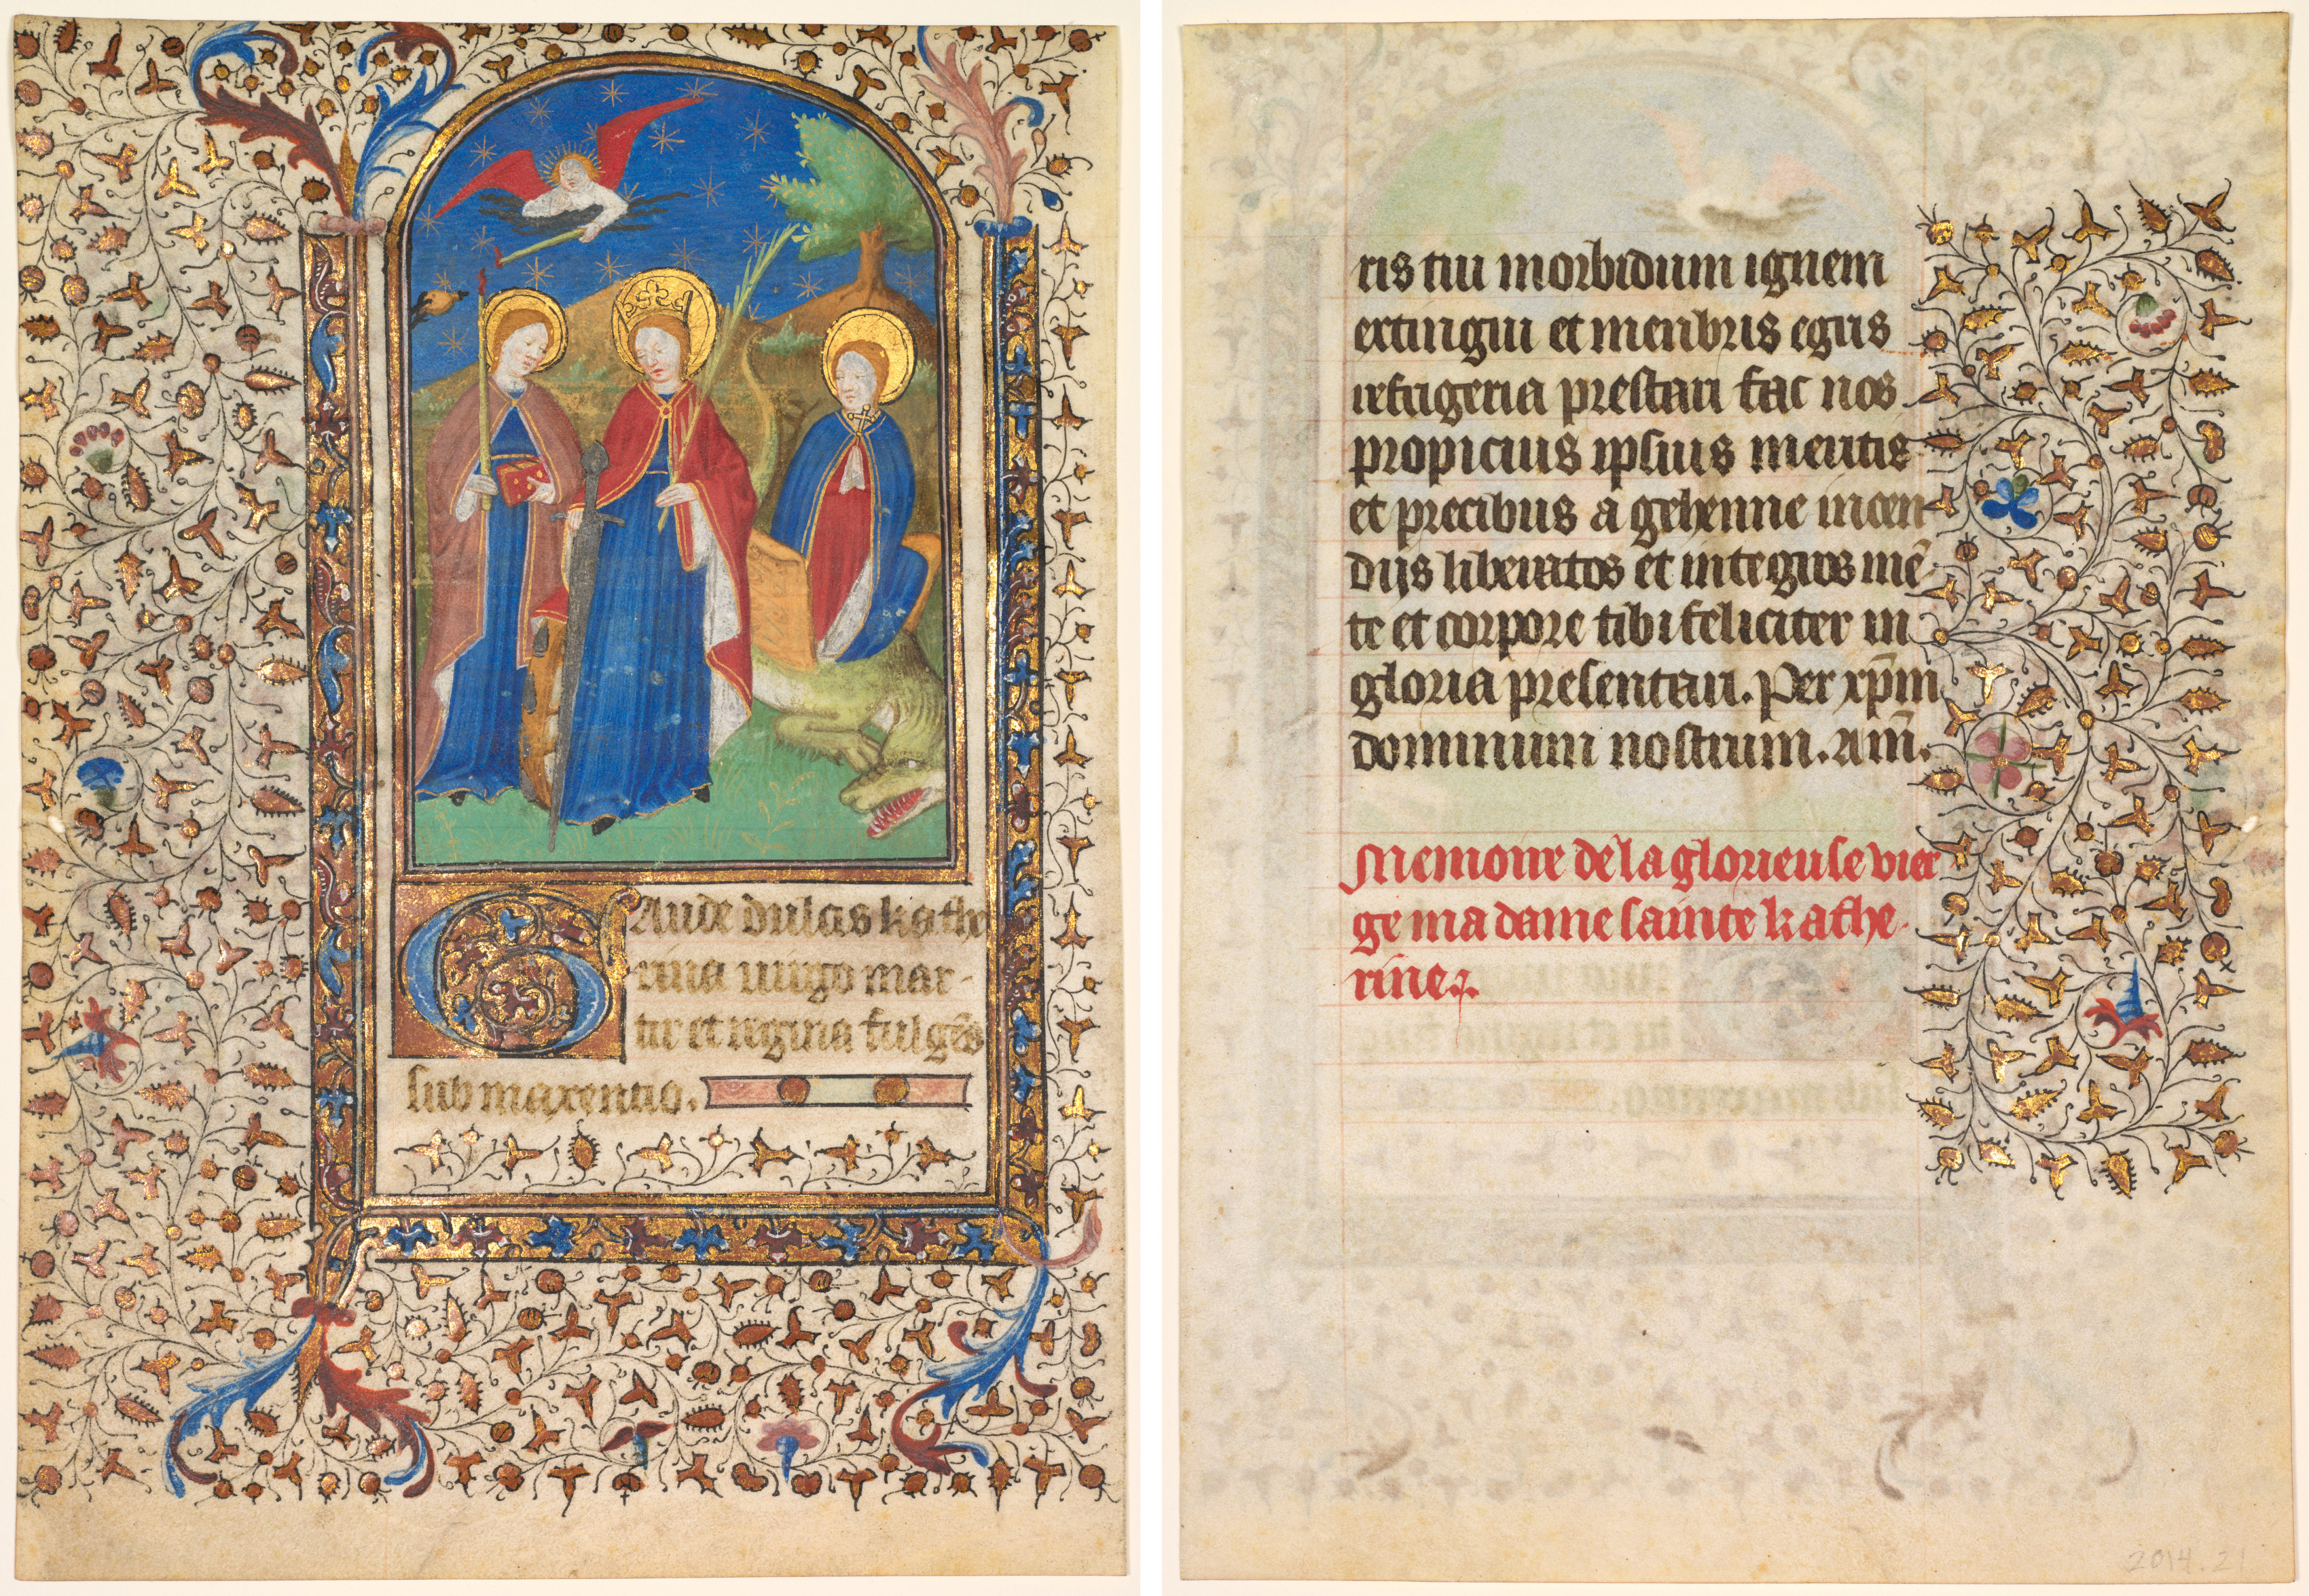 Gaude dulcis kathe
rina uirgo mar-
tir et regina fulgēs
sub maxentio.
ris tui morbidum ignem
extingui et menbris egris
refrigeria prestari fac nos
propicius ipsius meritis
et precibus a gehenne incen
dijs liberatos et integros mē-
te et corpore tibi feliciter in
gloria presentari. Per xp̄m
dominum nostrum. Am̄.
Memoire de la glorieuse vier
ge ma dame sainte kathe-
rine.
2014.21